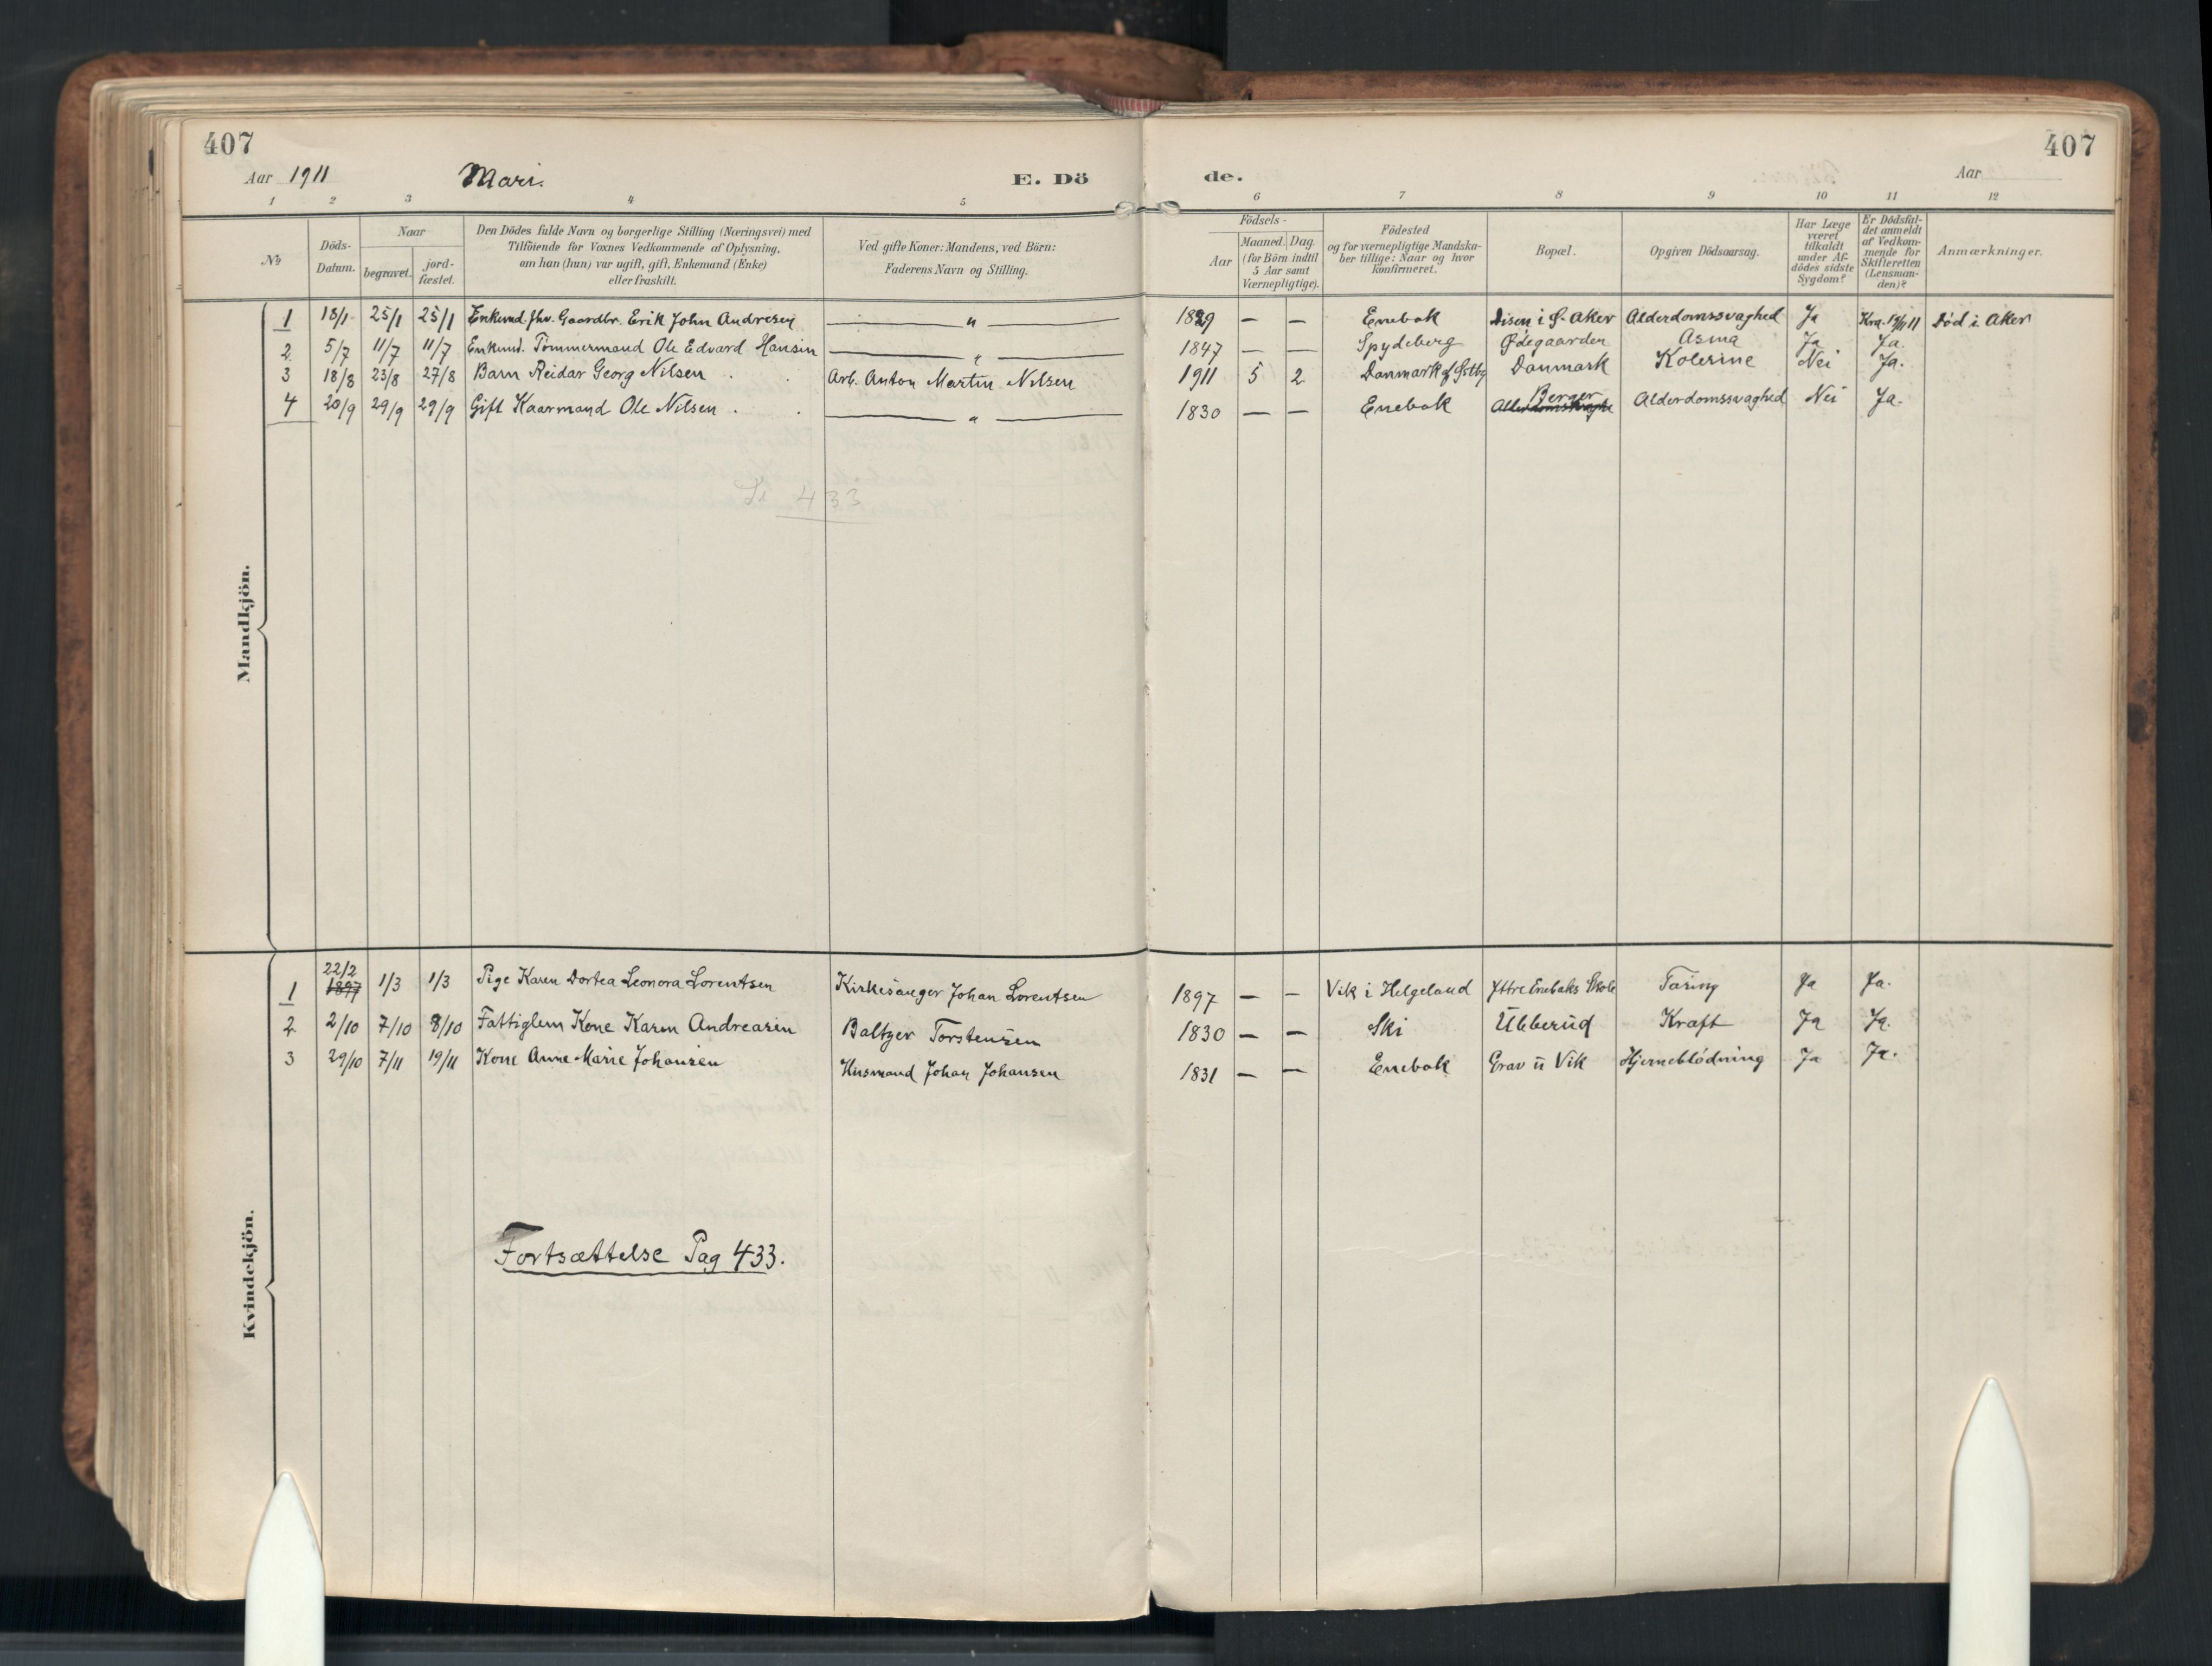 407
407
Aar 1911
Mari.
E. Dö
de.
Aar
1 2 3 4 5 6 7 8 9 10 11 12
No
Döds-Datum.
Naar
begravet.
jord-fæstet.
Den Dödes fulde Navn og borgerlige Stilling (Næringsvei) med
Tilföiende for Voxnes Vedkommende af Oplysning,
om han (hun) var ugift, gift, Enkemand (Enke)
eller fraskilt.
Ved gifte Koner: Mandens, ved Börn:
Faderens Navn og Stilling.
Födsels-
Aar
Maaned. Dag.
(for Börn indtil
5 Aar samt
Værnepligtige).
Födested
og for værnepligtige Mandska-
ber tillige: Naar og hvor
konfirmeret.
Bopæl.
Opgiven Dödsaarsag.
Har Læge
været
tilkaldt
under Af-
dödes sidste
Sygdom?
Er Dödsfal-
det anmeldt
af Vedkom-
mende for
Skifteretten
(Lensman-
den)?
Anmærkninger.
Mandkjön.
1 18/1 25/1 25/1 Enkemd. fhv. Gaardbr. Erik John Andresen — " — 1829 — — Enebak Disen i Ø. Aker Alderdomssvaghed Ja Kra. 11 Död i Aker
2 5/7 11/7 11/7 Enkemd. Tömmermand Ole Edvard Hansen — " — 1847 — — Spydeberg Ødegaarden Asma Ja Ja.
3 18/8 23/8 27/8 Barn Reidar Georg Nilsen Arb. Anton Martin Nilsen 1911 5 2 Danmark af Østby Danmark Kolerine Nei Ja.
4 20/9 29/9 29/9 Gift Kaarmand Ole Nilsen — " — 1830 — — Enebak Berger Alderdomssvaghed Nei Ja.
Se 433
Kvindekjön.
1 22/2 1897 1/3 1/3 Pige Karen Dortea Leonora Lorentsen Kirkesanger Johan Lorentsen 1897 — — Vik i Helgeland Yttre Enebaks Skole Tæring Ja Ja.
2 2/10 7/10 8/10 Fattiglem Kone Karen Andreasen Baltzer Torstensen 1830 — — Ski Ubberud Kræft Ja Ja.
3 29/10 7/11 19/11 Kone Anne Marie Johansen Husmand Johan Johansen 1831 — — Enebak Grav u Vik Hjerneblödning Ja Ja.
Fortsættelse Pag 433.